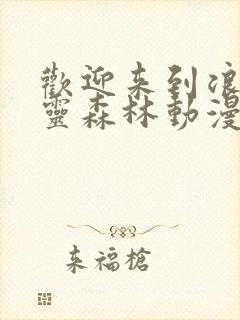 歡迎来到浪
靈森林動漫
来福槍